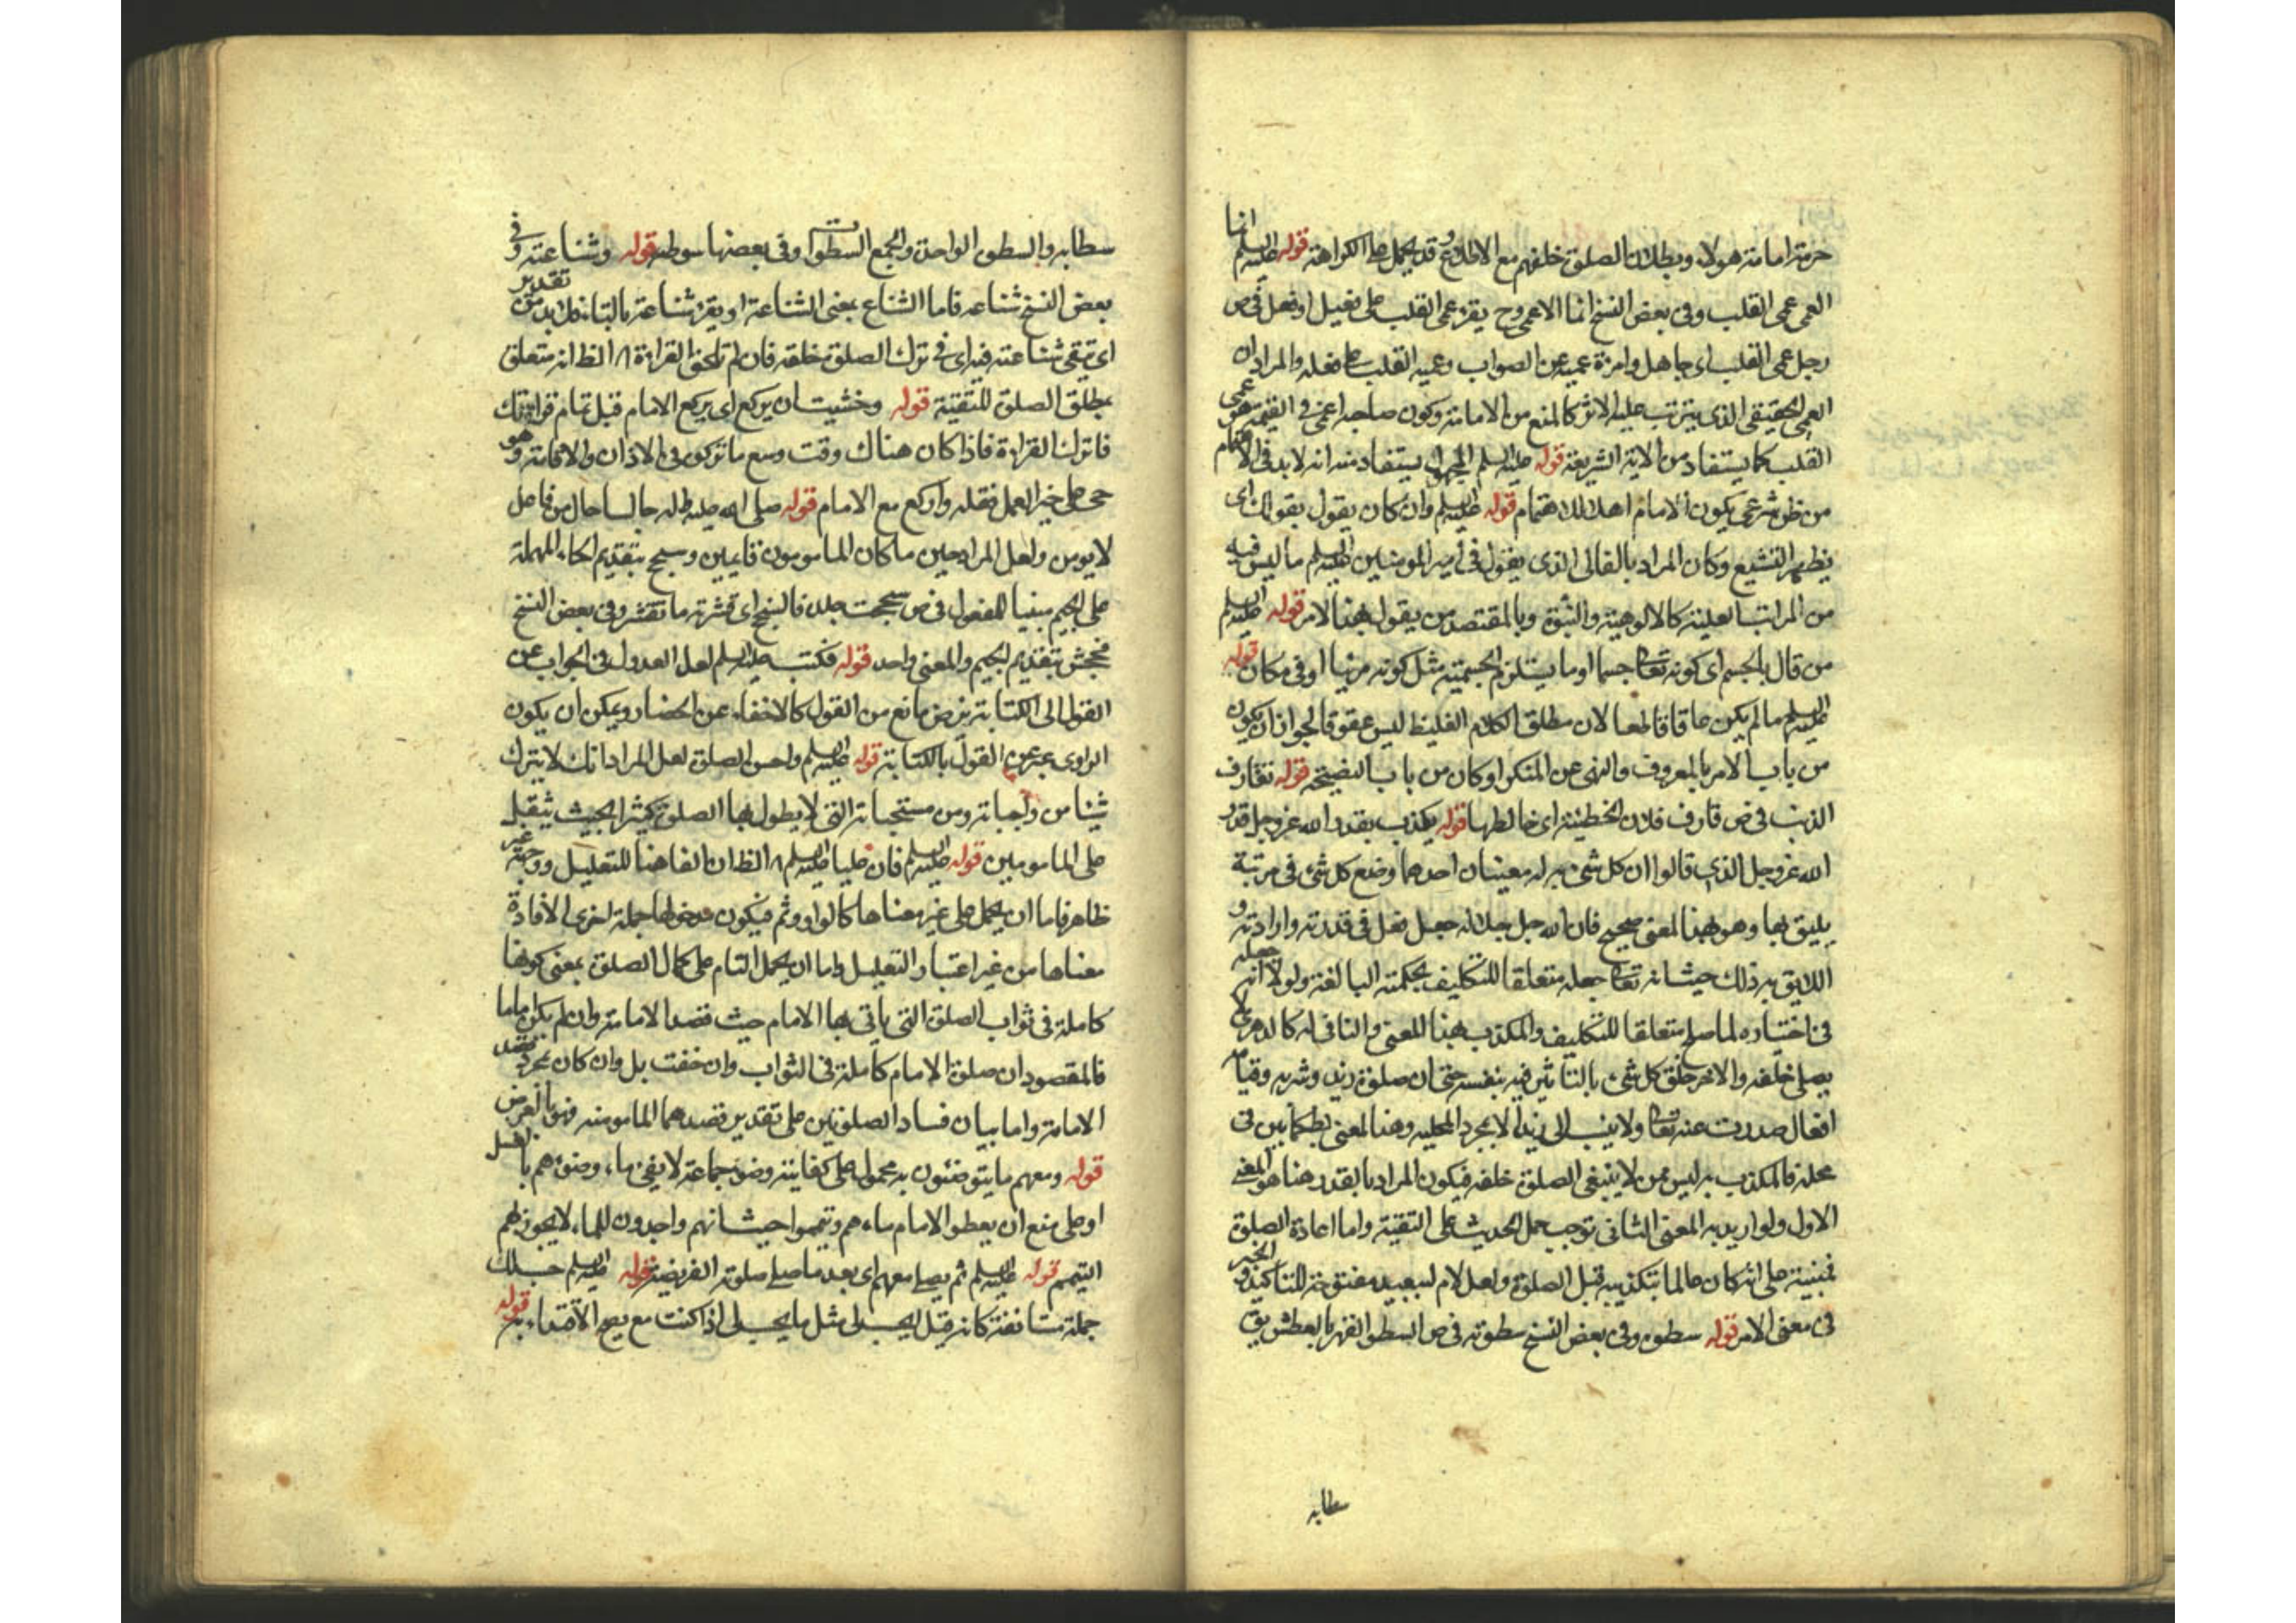 حرمة امامة هولاء وبطلان الصلوة خلفهم مع الاطلاع وقد يحمل على الكراهة قوله عليه السلم انما
العمى عمى القلب وفى بعض النسخ انما الاعمى وح يقرء عمى القلب على فعيل او فعل فى ص
رجل عمى القلب اى جاهل وامرءة عمية عن الصواب وعمية القلب على فعلة والمراد ان
العمى الحقيقى الذى يترتب عليه الاثر كالمنع من الامامة وكون صاحبه اعمى فى القيمة هو عمى
القلب كما يستفاد من الاية الشريفة قوله عليه السلم المجهول يستفاد منه انه لابد فى الايتمام
من ظن شرعى بكون الامام اهلا للاهتمام قوله عليه السلم وان كان يقول بقولك اى
يظهر التشيع وكان المراد بالغالى الذى يقول فى أمير المومنين عليه السلم ما ليس فيه
من المراتب العلية كالالوهية والنبوة وبالمقتصد من يقول بهذا الامر قوله عليه السلم
من قال بالجسم اى كونه تعالى جسما او ما يستلزم الجسمية مثل كونه مرئيا او فى مكان قوله
عليه السلم ما لم يكن عاقا قاطعا لان مطلق الكلام الغليظ ليس عقوقا لجواز ان يكون
من باب الامر بالمعروف والنهى عن المنكر او كان من باب النصيحة قوله تقارف
الذنب فى ص قارف فلان الخطيئة اى خالطها قوله يكذب بقدر الله عز وجل قدر
الله عز وجل الذى قالوا ان كل شىء به له معنيان احدهما وضع كل شىء فى مرتبة
يليق بها وهو بهذا المعنى صحيح فان الله جل جلاله جعل فعل فى قدرته وارادته و
اللايق به ذلك حيث انه تعالى جعله متعلقا للتكليف بحكمته البالغة ولولا انه جعله
فى اختياره لما صلح متعلقا للتكليف والمكذب بهذا المعنى والنافى له كالدهرى لا
يصلى خلفه والاخر خلق كل شىء بالتاثير فيه بنفسه حتى ان صلوة زيد وشربه وقيامه
افعال صدرت عنه تعالى ولا ينسب الى زيد الا بمجرد المحلية وهذا المعنى بط كما بين فى
محله فالمكذب به ليس ممن لا ينبغى الصلوة خلفه فيكون المراد بالقدر هنا هو المعنى
الاول ولو اريد به المعنى الثانى توجب حمل الحديث على التقية واما اعادة الصلوة
فمبنية على انه كان عالما بتكذيبه قبل الصلوة ولعل لام ليعيد مفتوحة للتاكيد والخبر
فى معنى الامر قوله سطوه وفى بعض النسخ سطوته فى ص السطو القهر بالبطش يق
سطابه
سطا به والسطوة الواحدة والجمع السطوات وفى بعضها سوطه قوله وشناعته وفى
بعض النسخ شناعه فاما الشناع بمعنى الشناعة او يقرء شناعة بالتاء فلابد من تقدير
اى تتقى شناعته فيه اى فى ترك الصلوة خلفه فان لم تلحق القراءة الظ انه متعلق
بطلق الصلوة للتقية قوله وخشيت ان يركع اى يركع الامام قبل تمام قراءتك
فاترك القراءة فاذا كان هناك وقت وسع ما تركوه فى الاذان والاقامة وهو
حى على خير العمل فقله واركع مع الامام قوله صلى الله عليه واله جالسا حال من فاعل
لا يومن ولعل المراد حين ما كان المامومون قائمين وسحج بتقديم الحاء المهملة
على الجيم مبنيا للمفعول فى ص سحجت جلده فانسحج اى قشرته فانقشر وفى بعض النسخ
فجحش بتقديم الجيم والمعنى واحد قوله فكتب عليه السلم لعل العدول فى الجواب عن
القول الى الكتابة بفرض مانع من القول كالاخفاء عن الحضار ويمكن ان يكون
الراوى عبر عن القول بالكتابة قوله عليه السلم واحسن الصلوة لعل المراد انك لا يترك
شيئا من واجباته ومن مستحباته التى لا يطول بها الصلوة كثيرا بحيث يثقل
على المامومين قوله عليه السلم فان عليا عليه السلم الظ ان الفا هنا للتعليل ووجهه غير
ظاهر فاما ان يحمل على غير معناها كالواو وثم فيكون مدخولها جملة اخرى لافادة
معناها من غير اعتبار التعليل واما ان يحمل التام على كمال الصلوة بمعنى كونها
كاملة فى ثواب الصلوة التى ياتى بها الامام حيث قصدا الامامة وان لم يكن اماما
فالمقصود ان صلوة الامام كاملة فى الثواب وان خففت بل وان كان بمجرد قصد
الامامة واما بيان فساد الصلوتين على تقدير قصدهما المامومية فهو بالعرض
قوله ومعهم ما يتوضئون به محمول على كفايته وضوء جماعة لا يفى بماء وضوءهم بالغسل
او على منع ان يعطوا الامام ماءهم وتيمموا حيث انهم واجدون للماء لا يجوز لهم
التيمم قوله عليه السلم ثم يصلى معهم اى بعد ما صلى صلوته الفريضة قوله عليه السلم حسبك
جملة مستانفة كانه قيل ليحسب لى مثل ما يحسب لى اذا كنت مع يصح الاقتداء به قوله